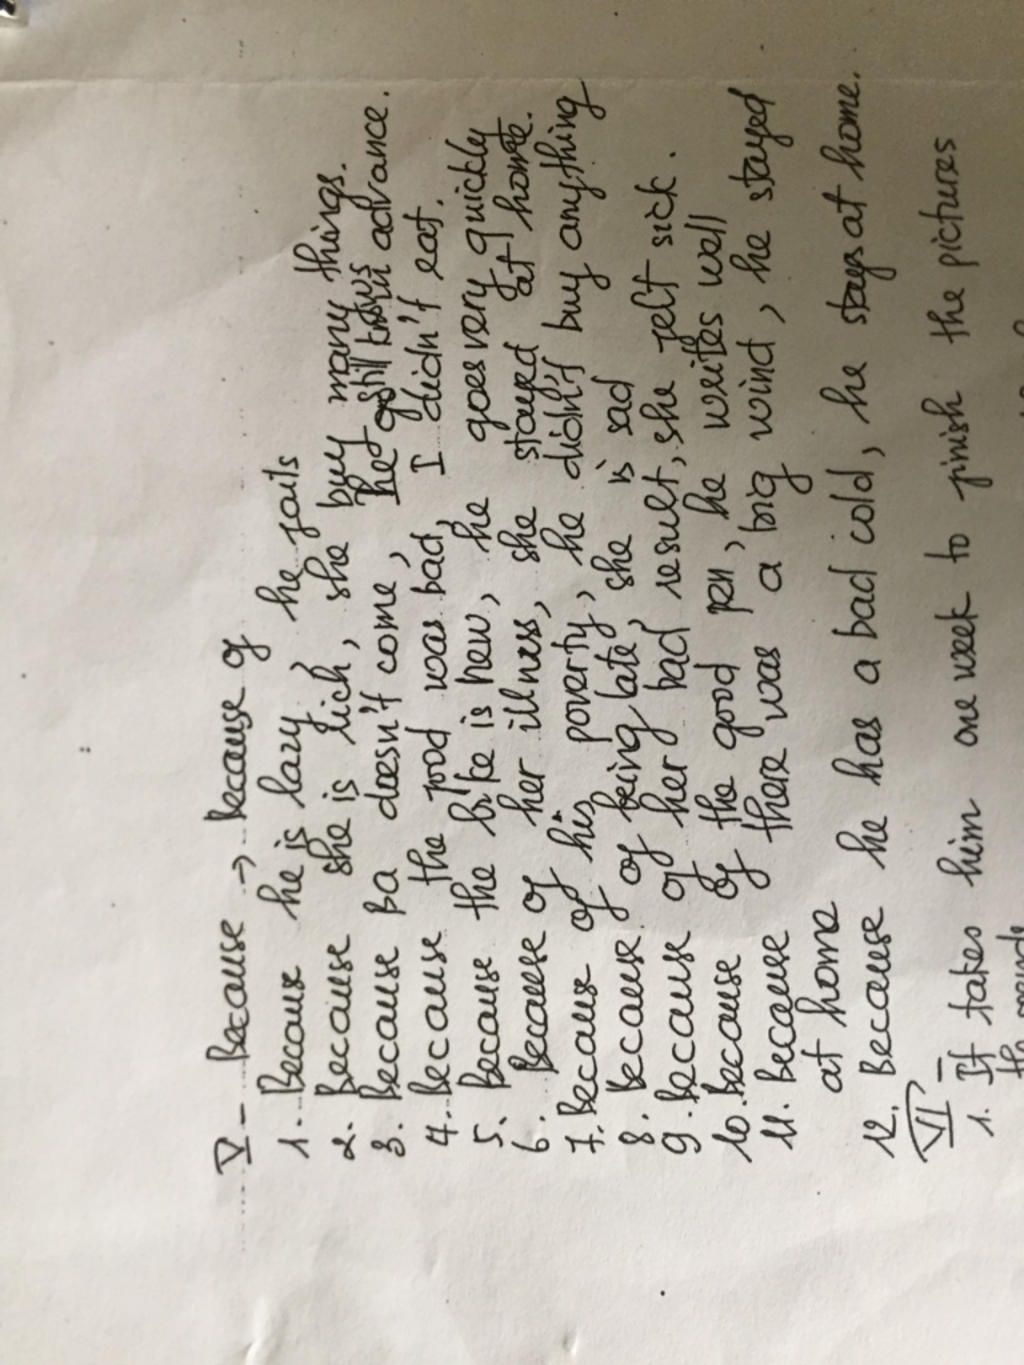 V - Because → Because of
1. Because he is lazy, he fails
2. Because she is rich, she buy many things.
3. Because Ba doesn't come, He still knows in advance.
4. Because the food was bad, I didn't eat.
5. Because the bike is new, he goes very quickly
6. Because of her illness, she stayed at home.
7. Because of his poverty, he didn't buy anything
8. because of being late, she is sad
9. because of her bad result, she felt sick.
10. because of the good pen, he writes wall
11. because there was a big wind, he stayed
at home
12. Because he has a bad cold, he stays at home.
VI -
1. It takes him one week to finish the pictures